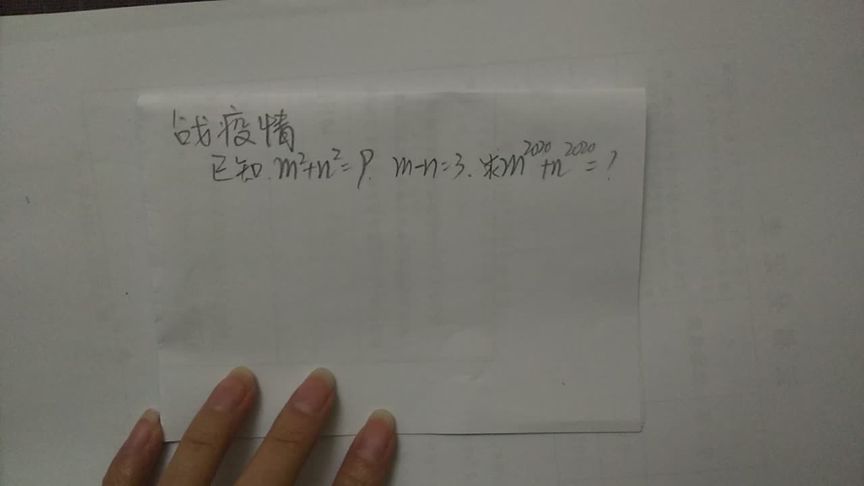 战疫情
已知.m²+n²=9. m-n=3.求m²⁰²⁰+n²⁰²⁰=?